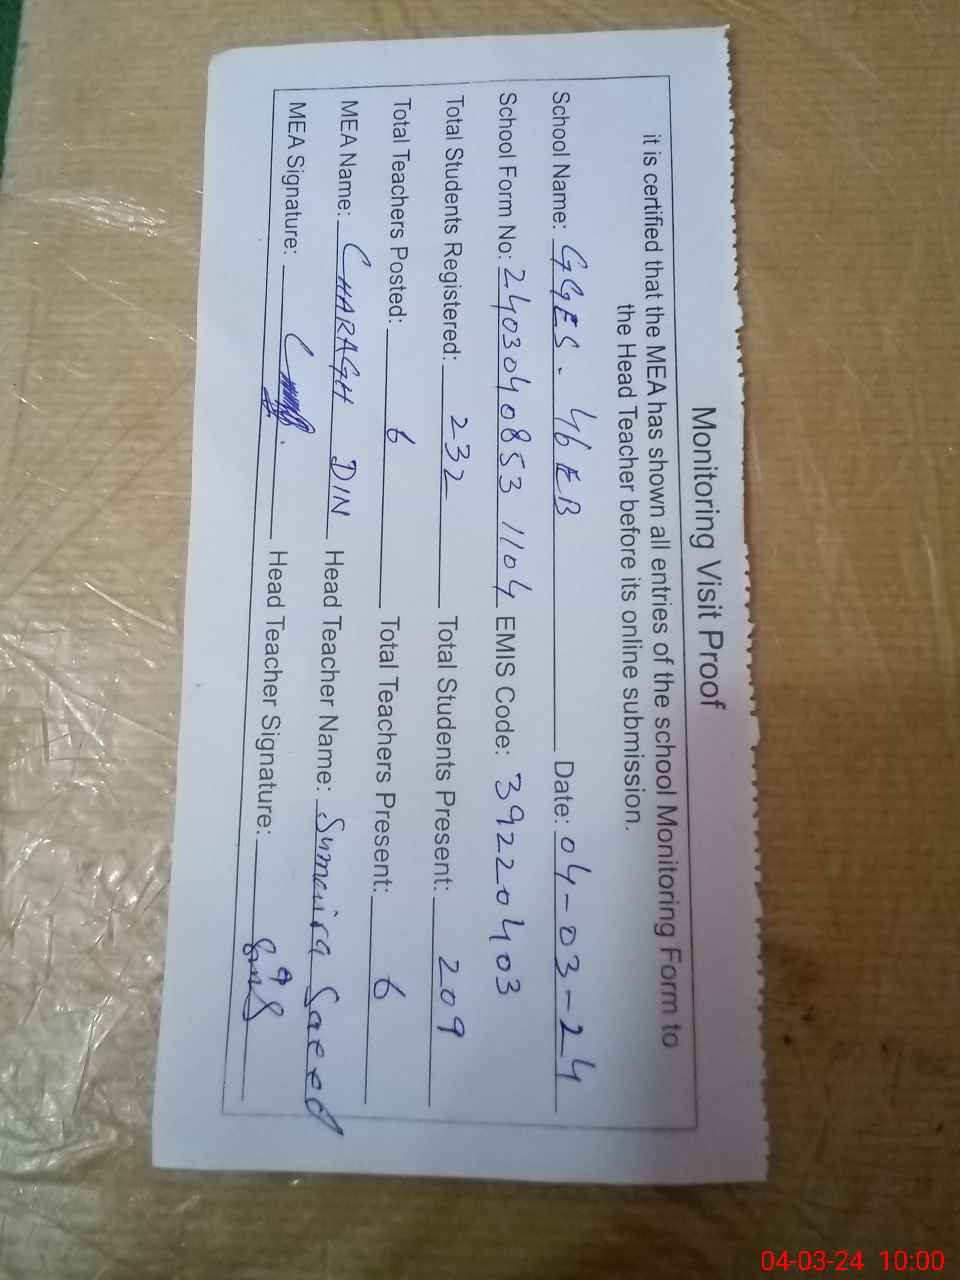 Monitoring Visit Proof
it is certified that the MEA has shown all entries of the school Monitoring Form to
the Head Teacher before its online submission.
School Name: GGES. 46 EB Date: 04-03-24
School Form No: 2403040853 1104 EMIS Code: 39220403
Total Students Registered: 232 Total Students Present: 209
Total Teachers Posted: 6 Total Teachers Present: 6
MEA Name: CHARAGH DIN Head Teacher Name: Sumaira Saeed
MEA Signature: Head Teacher Signature:
04-03-24 10:00